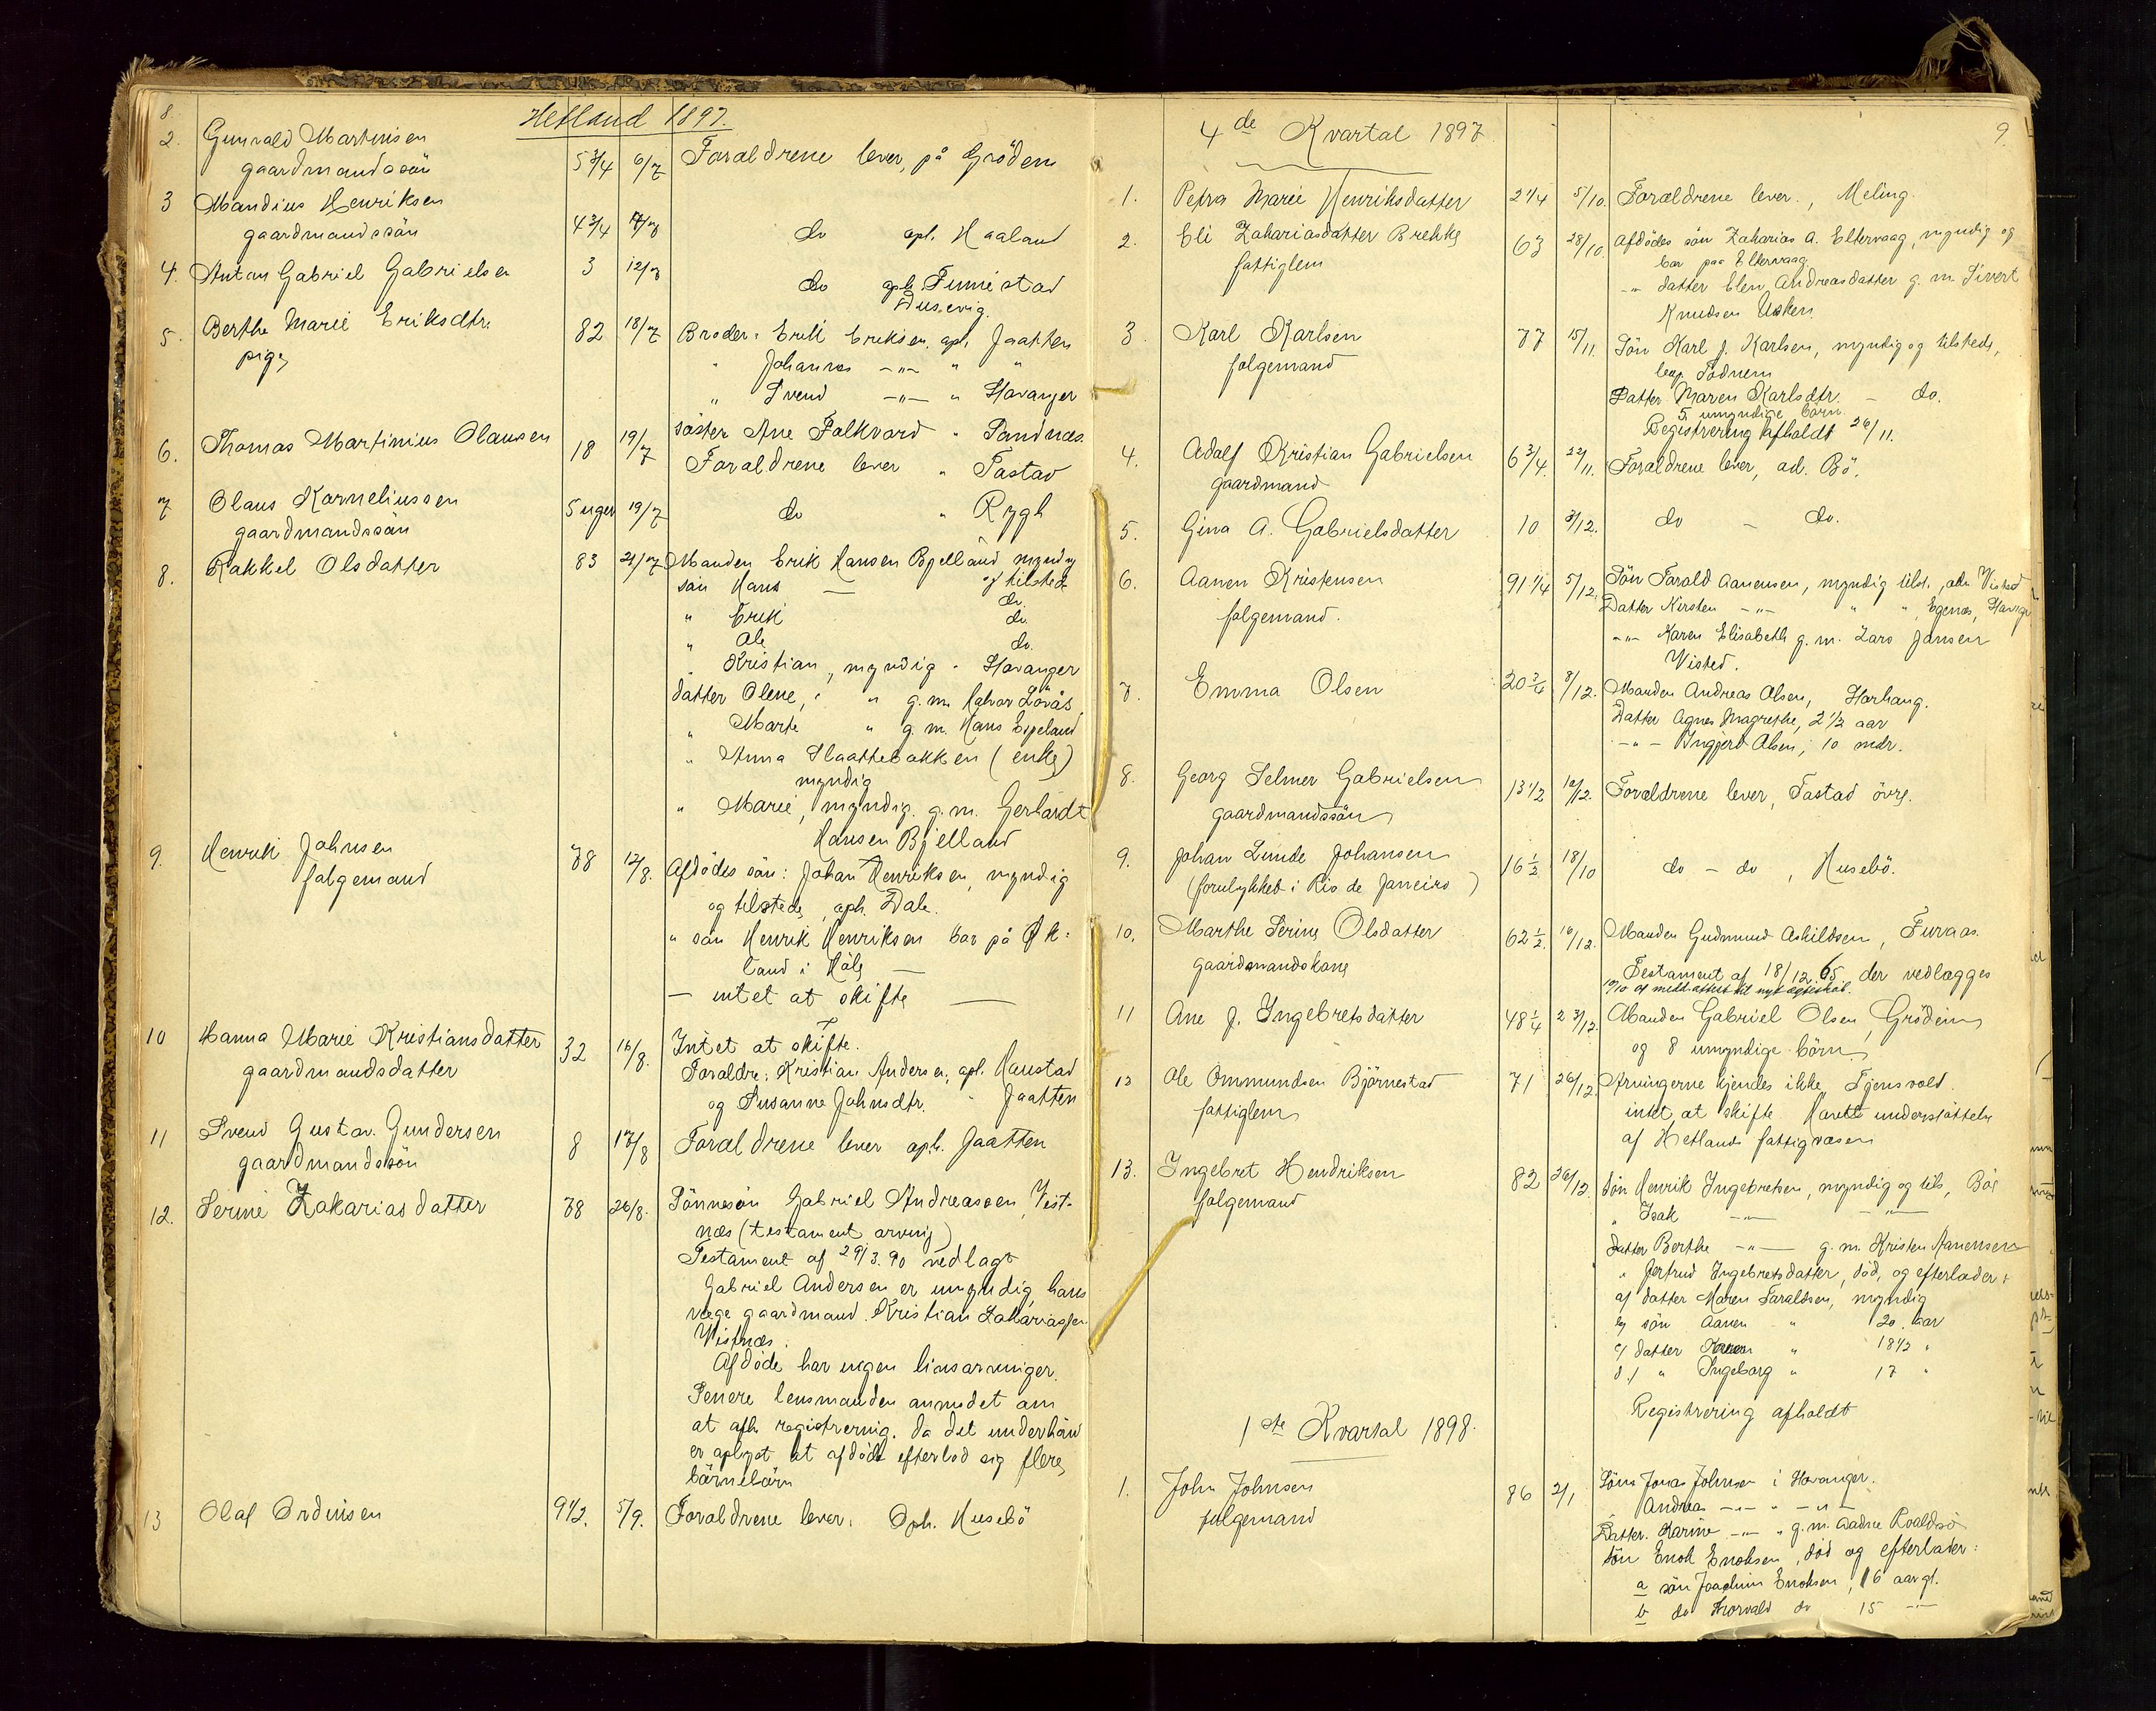 8.
Hetland 1897.
2. Gunvald Martinisen
gaardmandssön 5 3/4 6/7 Forældrene lever, på Gröden
3 Mandius Henriksen
gaardmandssön 4 3/4 7/7 do opl. Haaland
4. Anton Gabriel Gabrielsen 3 12/7 do opl. Finnestad
Dusevig.
5. Berthe Marie Eriksdtr. 82 18/7 Broder: Erik Eriksen, opl. Jaatten
pige " Johannes -"- " "
" Svend -"- " Stavanger
söster Ane Falkvard " Sandnæs.
6. Thomas Martinius Olausen 18 19/7 Forældrene lever " Tastad
7 Olaus Korneliussen 5 uger 19/7 do " Rygh
gaardmandssön
8. Rakkel Olsdatter 83 21/7 Manden Erik Hansen Bjelland myndig
sön Hans — og tilstede
" Erik do.
" Ole do.
" Kristian, myndig - Stavanger
datter Olene, " " g.m. Halvor Löväs
" Marte " g. m. Hans Espeland
" Anna Slaattebakken (enke)
myndig
" Marie, myndig. g.m. Gerhardt
Hansen Bjelland
9. Henrik Johnsen 78 12/8. Afdödes sön: Johan Henriksen, myndig
folgemand og tilstede, oph. Dale.
" sön Henrik Henriksen bor på Øk-
land i Höle —
— intet at skifte —
10 Hanna Marie Kristiansdatter 32 16/8. Intet at skifte.
gaardmandsdatter Forældre: Kristian Andersen, opl. Haustad
og Susanne Johnsdtr. " Jaatten
11 Svend Gustav. Gundersen 8 17/8 Forældrene lever oph. Jaatten
gaardmandssön
12. Serine Zakariasdatter 78 26/8. Sönnesön Gabriel Andreassen, Vist-
næs (testament arving)
Testament af 29/3. 90 vedlagt
Gabriel Andersen er umyndig, hans
væge gaardmand Kristian Zakariassen
Vistnæs.
Afdöde har ingen livsarvinger.
Senere lensmanden anmodet om
at afh. registrering. da det underhånd
er oplyst at afdöde efterlod sig flere
börnebörn
13 Olaf Ordinsen 9 1/2. 5/9. Forældrene lever. Oph. Husebö
9.
4de Kvartal 1897
1. Petra Marie Henriksdatter 2 1/4 5/10. Forældrene lever., Meling.
2. Eli Zakariasdatter Brekke 63 28/10. Afdödes sön Zakarias A. Eltervaag, myndig og
fattiglem bor paa Eltervaag
-"- datter Elen Andreasdatter g. m. Sivert
Knudsen Usken.
3 Karl Karlsen 77 15/11. Sön Karl J. Karlsen, myndig og tilstede,
folgemand Södnem
Datter Maren Karlsdtr. - do.
5 umyndige börn
Registrering afholdt 26/11.
4. Adolf Kristian Gabrielsen 6 3/4. 22/11. Forældrene lever, ad. Bö.
gaardmand
5. Gina A. Gabrielsdatter 10 3/12. do - do.
6. Aanen Kristensen 91 1/4 5/12. Sön Torald Aanensen, myndig tilst., Visted
folgemand. Datter Kirsten -"- " " Egenæs, Havnge
-"- Karen Elisabeth g. m. Lars Jansen
Visted.
7. Emma Olsen 20 3/4 8/12. Manden Andreas Olsen, Harhaug.
Datter Agnes Magrethe, 2 1/2 aar
-"- Ingjerd Olsen, 10 mdr.
8. Georg Selmer Gabrielsen 13 1/2 10/12. Forældrene lever, Tastad övre.
gaardmandssön
9. Johan Lunde Johansen 16 1/2 18/10 do - do, Husebö.
(forulykket i Rio de Janeiro)
10. Marthe Serine Olsdatter 62 1/2. 16/12. Manden Gudmund Askildsen, Furaas.
gaardmandskone Testament af 18/12 65 der vedlægges
11 Ane J. Ingebretsdatter 48 1/4 23/12. Manden Gabriel Olsen, Grödeim
og 8 umyndige börn
12 Ole Ommundsen Björnestad 71 26/12. Arvingerne kjendes ikke, Tjensvold.
fattiglem intet at skifte. Havette understöttelse
af Hetlands fattigvæsen
13. Ingebret Hendriksen 82 26/12. Sön Henrik Ingebretsen, myndig og tils, Böe
folgemand " Isak -"- - "-
Datter Berthe -"- g. m. Kristen Aanensen
" Jertrud Ingebretsdatter, död, og efterlader:
a/ datter Maren Taraldsen, myndig
b/ sön Aanen " 20 aar
c/ datter Karen " 18 1/2 "
d./ " Ingeborg " 17 "
Registrering afholdt
1ste Kvartal 1898.
1. John Johnsen 86 2/1 Söns Jonas Johnsen i Stavanger.
folgemand Andreas -"- " -"-
Datter. Karine -"- " g. m. Aadne Roaldsö
Sön Enok Enoksen, död og efterlader:
a sön Joachim Enoksen, 16 aar gl.
b do Thorvald do 15 -"-